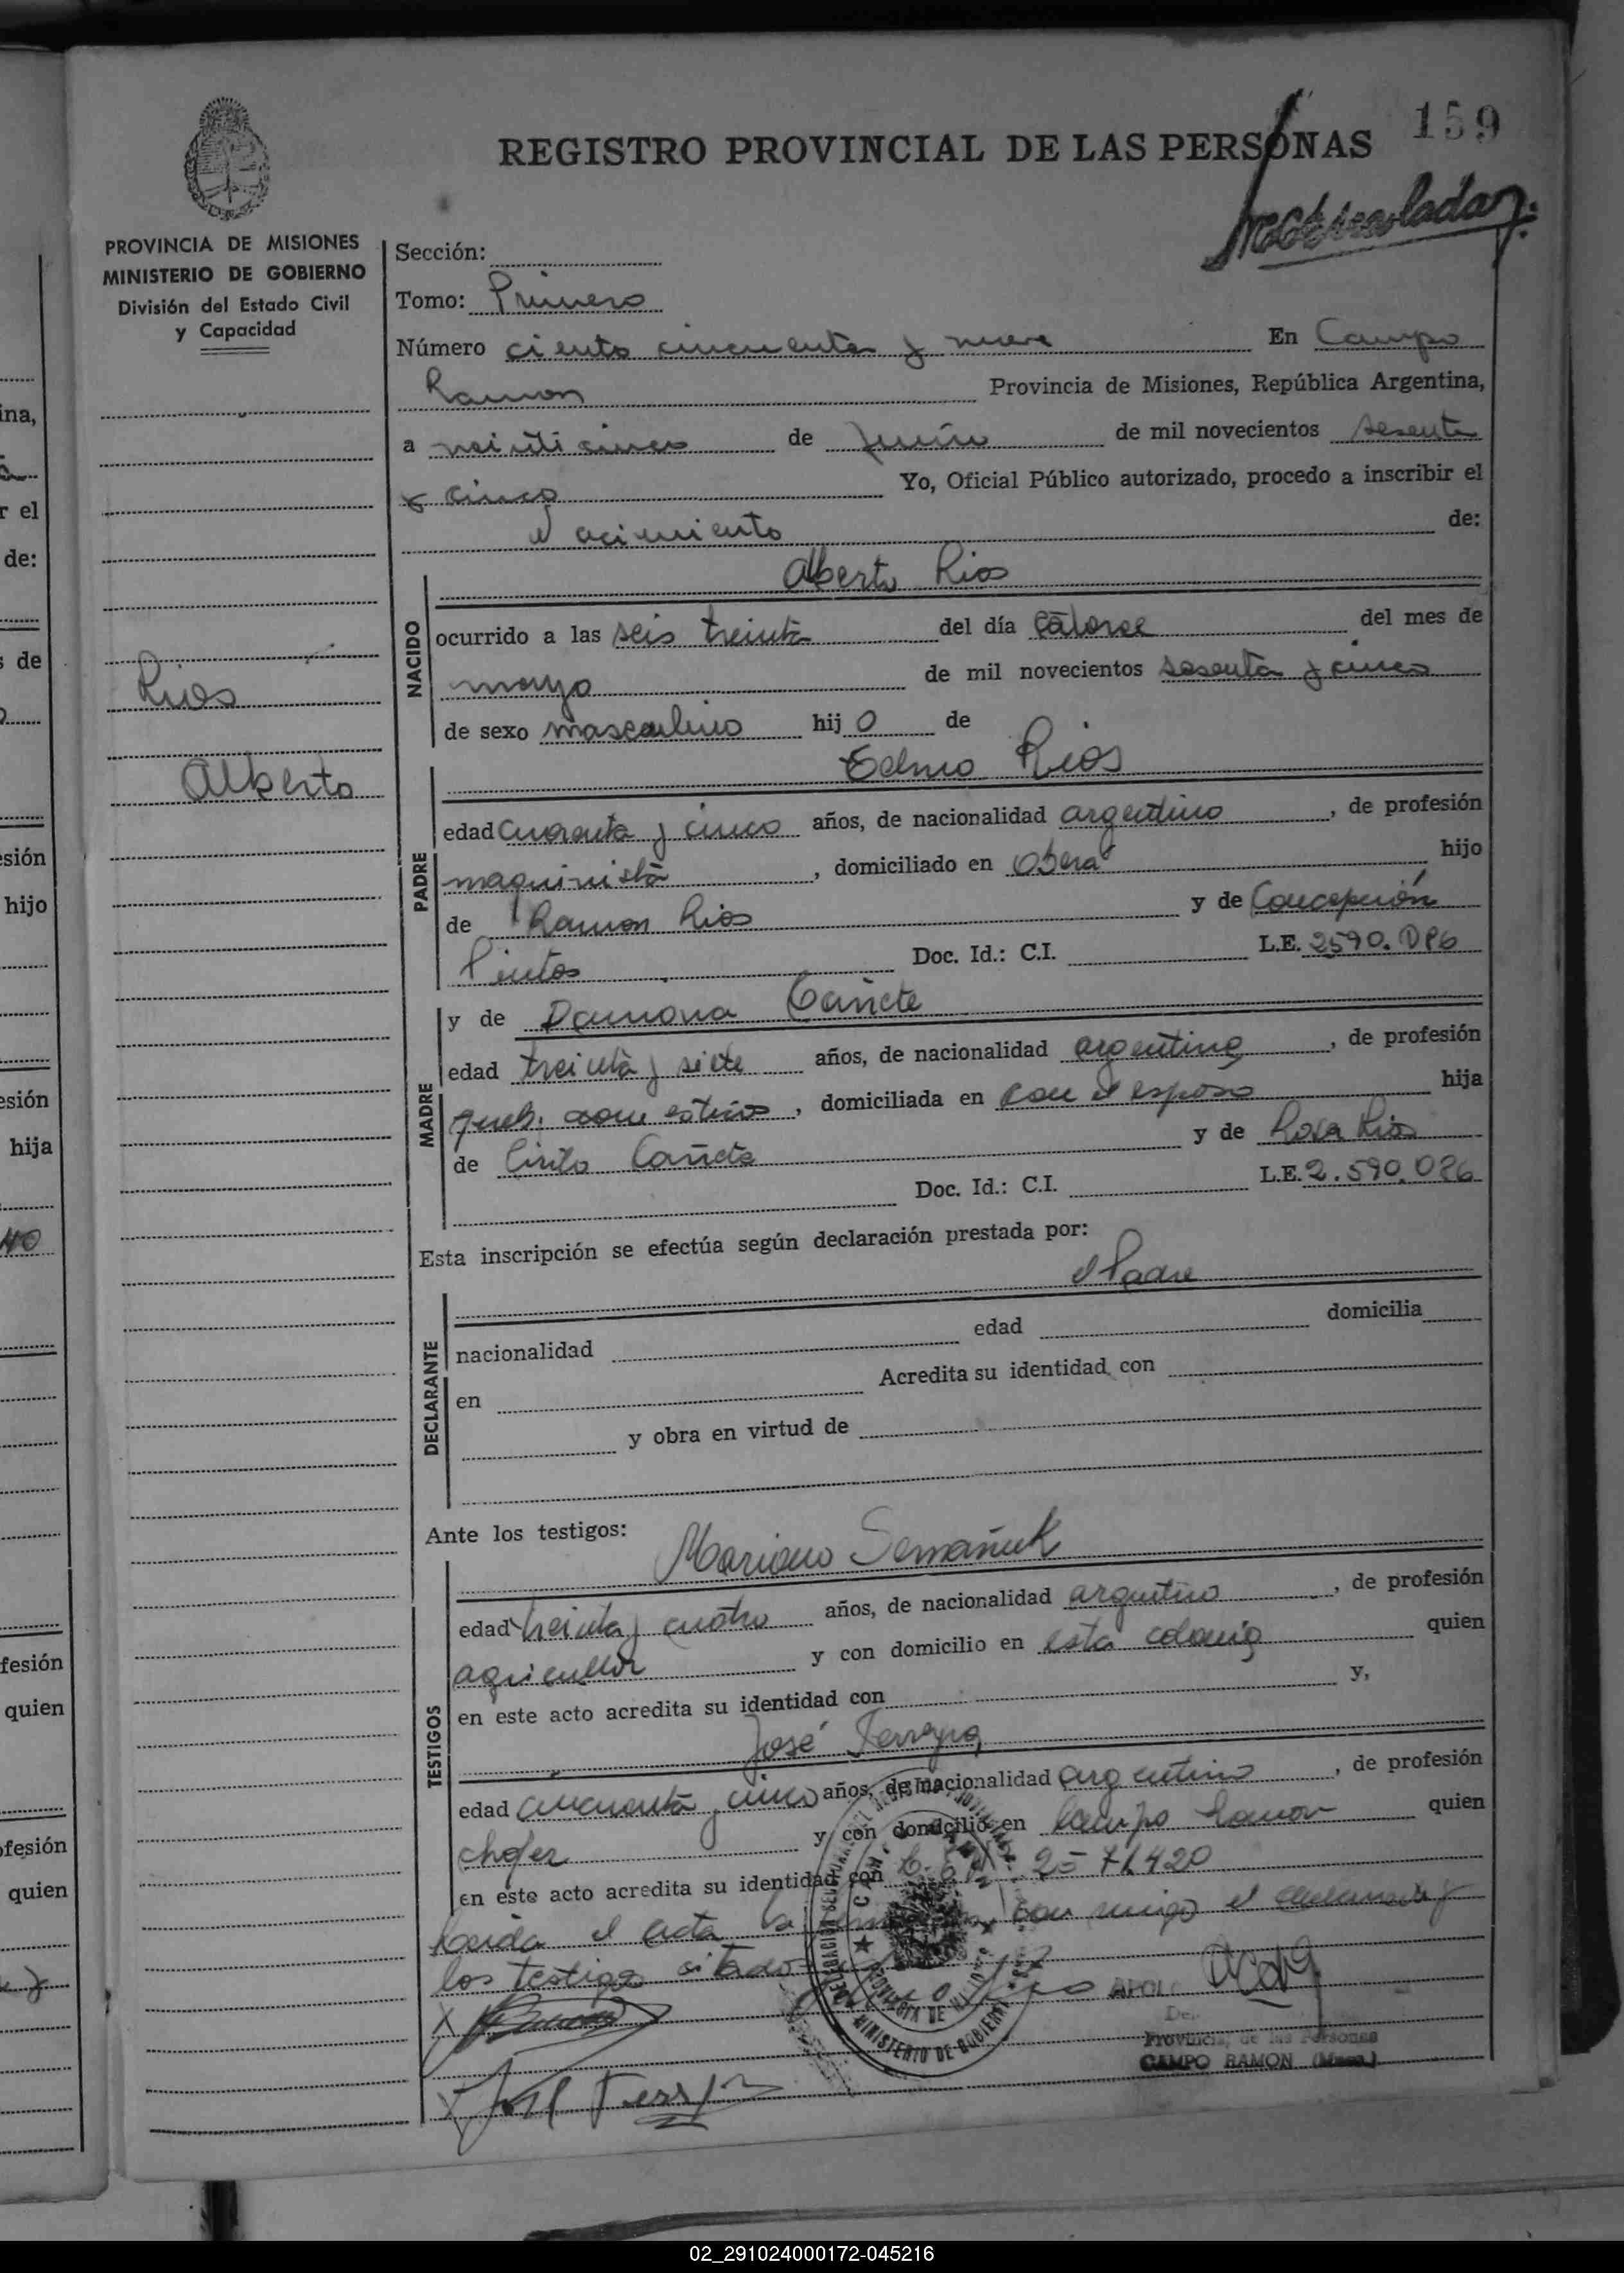 159
REGISTRO PROVINCIAL DE LAS PERSONAS
PROVINCIA DE MISIONES
MINISTERIO DE GOBIERNO
División del Estado Civil
y Capacidad
Rios
Alberto
Sección:
Tomo: Primero
Número ciento cincuenta y nueve En Campo
Ramon Provincia de Misiones, República Argentina,
a veinticinco de junio de mil novecientos sesenta
y cinco Yo, Oficial Público autorizado, procedo a inscribir el
nacimiento de:
Alberto Rios
NACIDO
ocurrido a las seis treinta del día catorce del mes de
mayo de mil novecientos sesenta y cinco
de sexo masculino hijo de
Telmo Rios
PADRE
edad cuarenta y cinco años, de nacionalidad argentino, de profesión
maquinista, domiciliado en Oberá hijo
de Ramon Rios y de Concepción
Pintos Doc. Id.: C.I. L.E. 2590.086
y de Ramona Cañete
MADRE
edad treinta y siete años, de nacionalidad argentina, de profesión
queh. domesticos, domiciliada en con el esposo hija
de Cirilo Cañete y de Rosa Rios
Doc. Id.: C.I. L.E. 2.590.086
Esta inscripción se efectúa según declaración prestada por:
el Padre
DECLARANTE
nacionalidad edad domicilia
en Acredita su identidad con
y obra en virtud de
Ante los testigos:
Mariano Semañuk
TESTIGOS
edad treinta y cuatro años, de nacionalidad argentino, de profesión
agricultor y con domicilio en esta colonia quien
en este acto acredita su identidad con y,
José Ferreyra
edad cincuenta y cinco años, de nacionalidad argentino, de profesión
chofer y con domicilio en Campo Ramon quien
en este acto acredita su identidad con 2571420
Leida el acta la con migo el declarante y
los testigos sitados
MINISTERIO DE GOBIERNO
PROVINCIA DE MISIONES
CAMPO RAMON
02_291024000172-045216